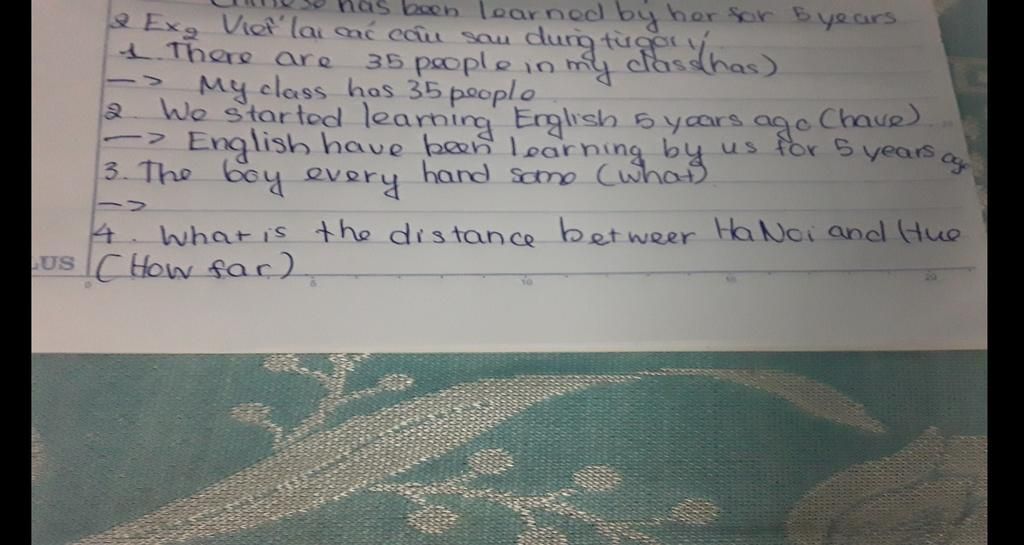 has been learned by her for 5 years
2 Ex2 Viết lại các câu sau dùng từ gợi ý
1. There are 35 people in my class (has)
-> My class has 35 people
2. We started learning English 5 years ago (have)
-> English have been learning by us for 5 years ago
3. The boy every hand some (what)
->
4. What is the distance betweer HaNoi and Hue
(How far)
US
0 5 10 15 20